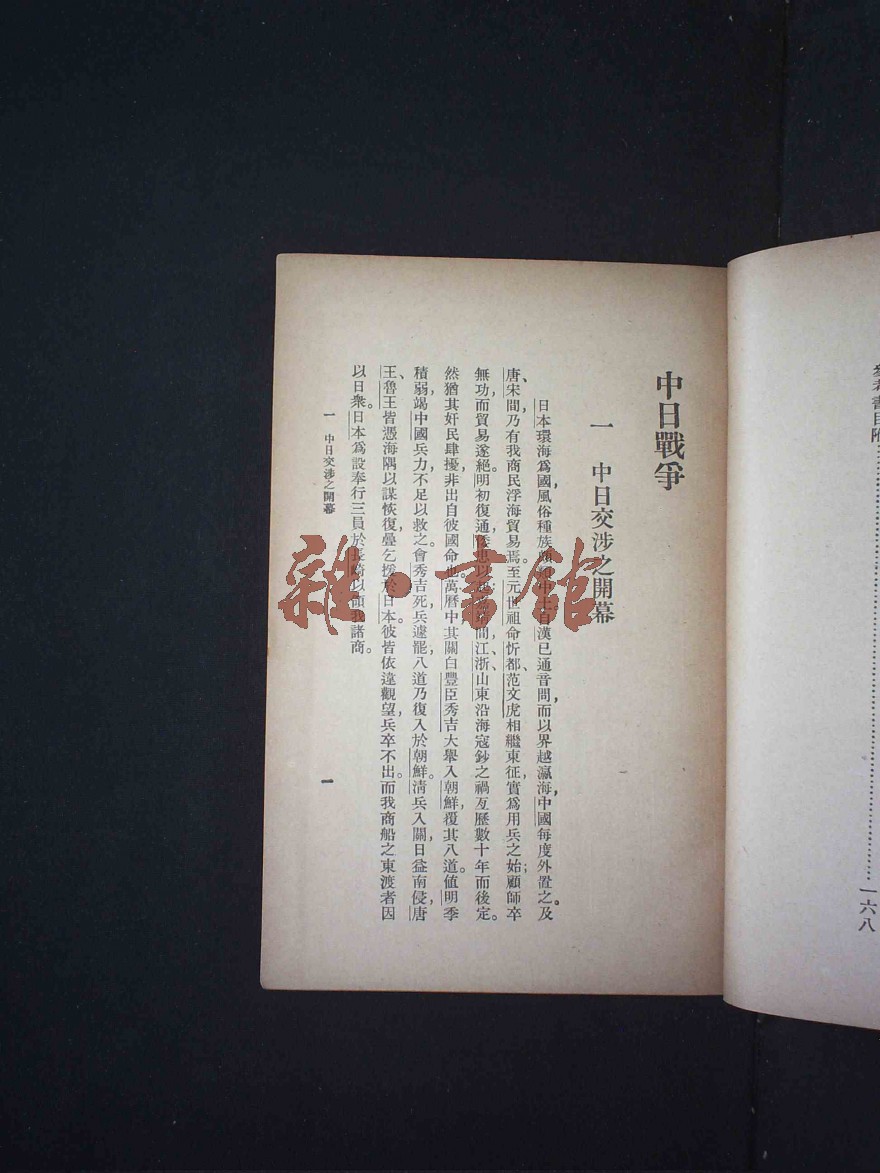 參考書目附……一六八
中日戰爭
一　中日交涉之開幕
日本環海爲國，風俗種族頗類中土。自漢已通音問，而以界越瀛海，中國每度外置之。及
唐、宋間，乃有我商民浮海貿易焉。至元世祖命忻都、范文虎相繼東征，實爲用兵之始；顧師卒
無功，而貿易遂絕。明初復通，倭患以起，間江、浙、山東沿海寇鈔之禍，亙歷數十年而後定。
然猶其奸民肆擾，非出自彼國命也。萬曆中，其關白豐臣秀吉大舉入朝鮮，覆其八道。值明季
積弱，竭中國兵力，不足以救之。會秀吉死，兵遽罷，八道乃復入於朝鮮。淸兵入關，日益南侵，唐
王、魯王皆憑海隅以謀恢復，疊乞援於日本。彼皆依違觀望，兵卒不出。而我商船之東渡者因
以日衆。日本爲設奉行三員於長崎，以領我諸商。
一　中日交涉之開幕
一
雜·書館